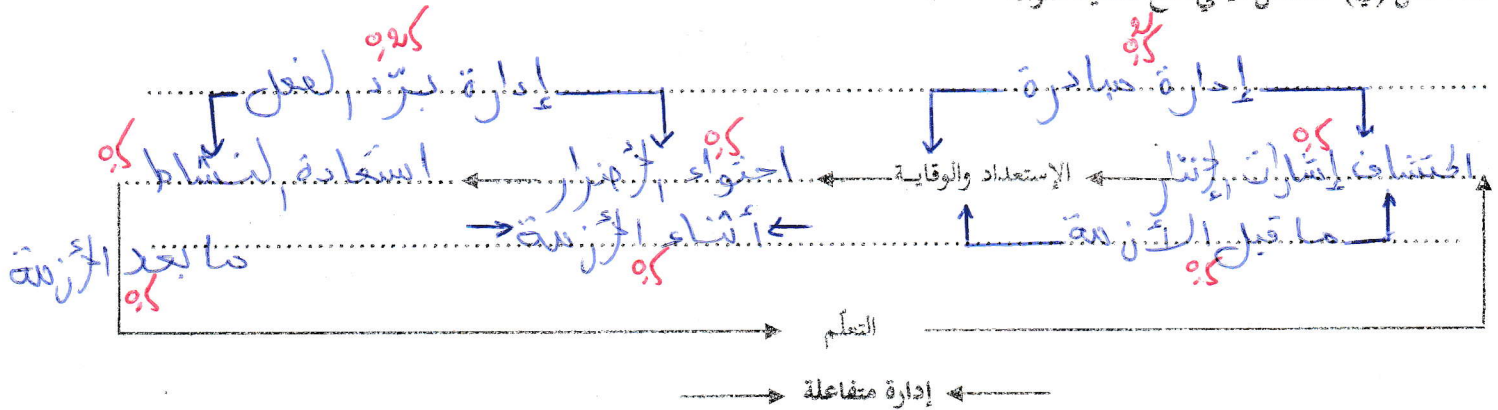 0,25 0,25
إدارة مبادرة إدارة برّد الفعل
0,5 0,5 0,5
اكتشاف إشارات الإنذار الإستعداد والوقاية احتواء الأضرار استعادة النشاط
ما قبل الأزمة أثناء الأزمة ما بعد الأزمة
0,5 0,5 0,5
التعلّم
إدارة متفاعلة